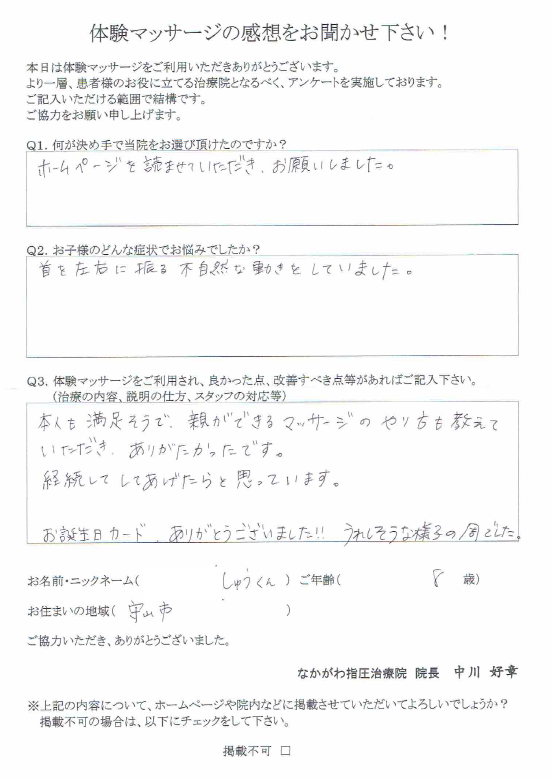 体験マッサージの感想をお聞かせ下さい！
本日は体験マッサージをご利用いただきありがとうございます。
より一層、患者様のお役に立てる治療院となるべく、アンケートを実施しております。
ご記入いただける範囲で結構です。
ご協力をお願い申し上げます。
Q1. 何が決め手で当院をお選び頂けたのですか？
ホームページを読ませていただき、お願いしました。
Q2. お子様のどんな症状でお悩みでしたか？
首を左右に振る不自然な動きをしていました。
Q3. 体験マッサージをご利用され、良かった点、改善すべき点等があればご記入下さい。
(治療の内容、説明の仕方、スタッフの対応等)
本人も満足そうで、親ができるマッサージのやり方も教えて
いただき、ありがたかったです。
経続してしてあげたらと思っています。
お誕生日カード、ありがとうございました!! うれしそうな様子の でした。
お名前・ニックネーム( しゅうくん ) ご年齢( 8 歳)
お住まいの地域( 守山市 )
ご協力いただき、ありがとうございました。
なかがわ指圧治療院 院長 中川 好章
※上記の内容について、ホームページや院内などに掲載させていただいてよろしいでしょうか？
掲載不可の場合は、以下にチェックをして下さい。
掲載不可 □